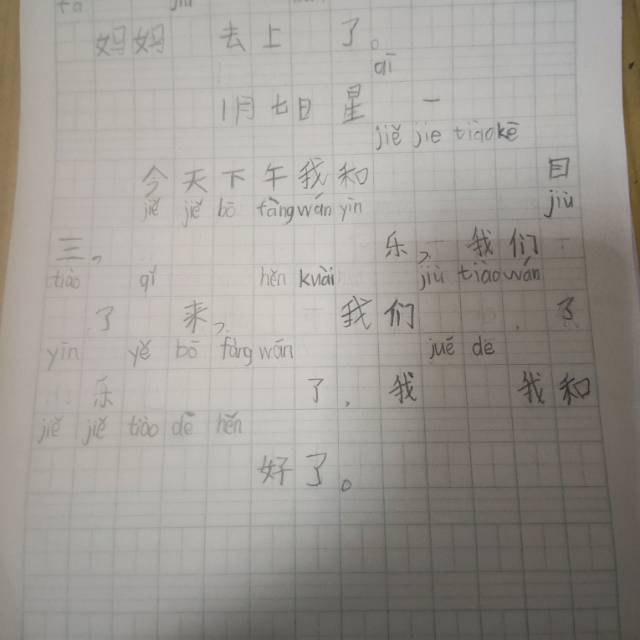 妈妈 去上 了。
āi
1月七日 星 一
jiě jie tiào kē
今天下午我和 曰
jiě jiě bō fàng wán yīn jiù
三。 乐、我们
tiào qǐ hěn kuài jiù tiào wán
了 来、 我们 了
yīn yě bō fàng wán jué dē
乐 了，我 我和
jiě jiě tiào dē hěn
好了。